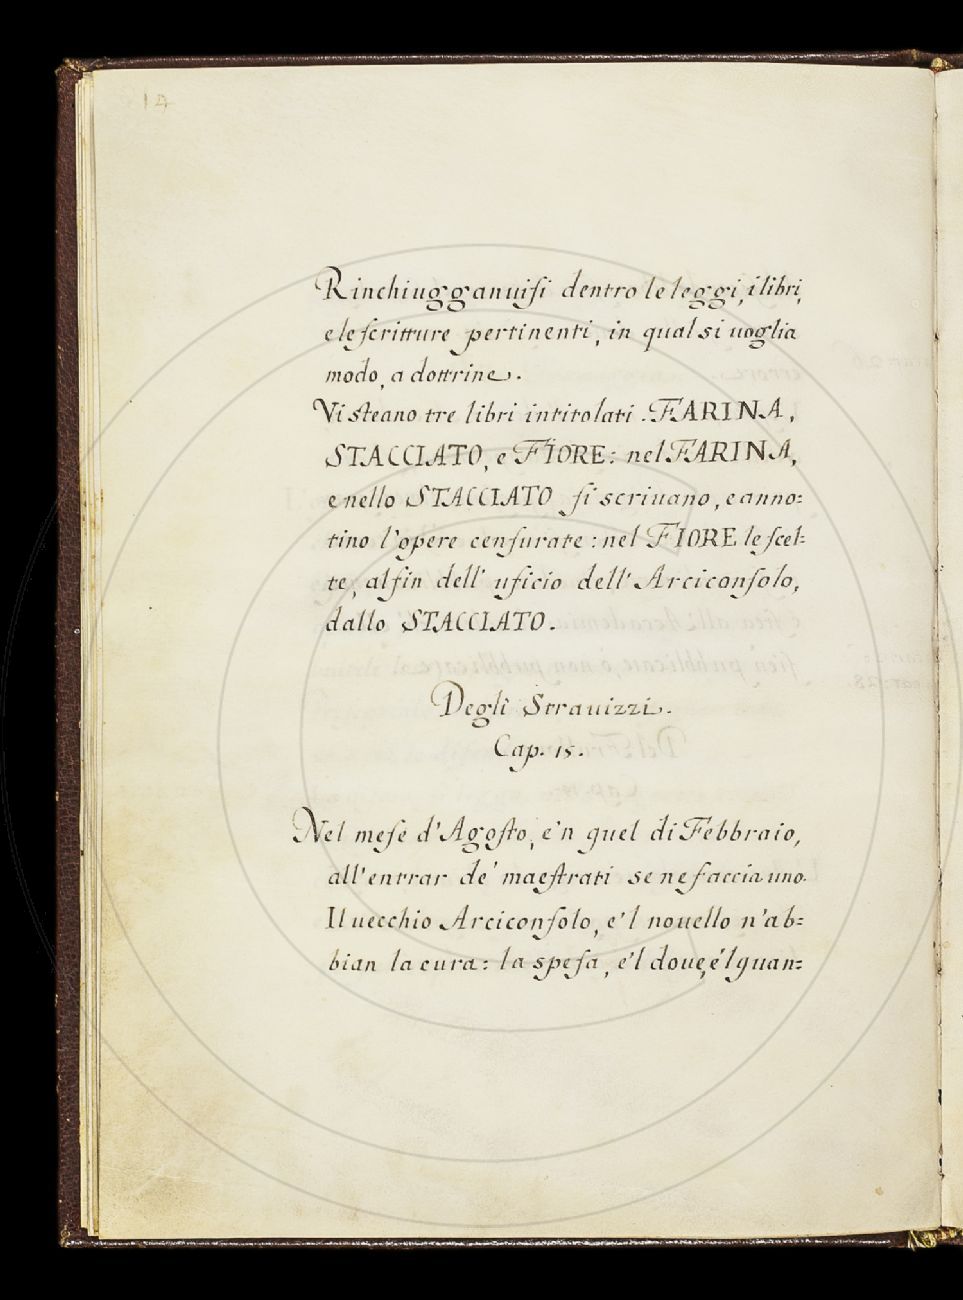 14
Rinchiugganuisi dentro le leggi, i libri,
e le scritture pertinenti, in qual si uoglia
modo, a dottrine.
Vi steano tre libri intitolati. FARINA,
STACCIATO, e FIORE: nel FARINA,
e nello STACCIATO si scriuano, e anno:
tino l'opere censurate: nel FIORE le scel:
te, alfin dell' uficio dell' Arciconsolo,
dallo STACCIATO.
Degli Strauizzi.
Cap. 15.
Nel mese d'Agosto, e'n quel di Febbraio,
all'entrar de' maestrati se ne faccia uno.
Il uecchio Arciconsolo, e'l nouello n'ab:
bian la cura: la spesa, e'l doue, e'l quan: